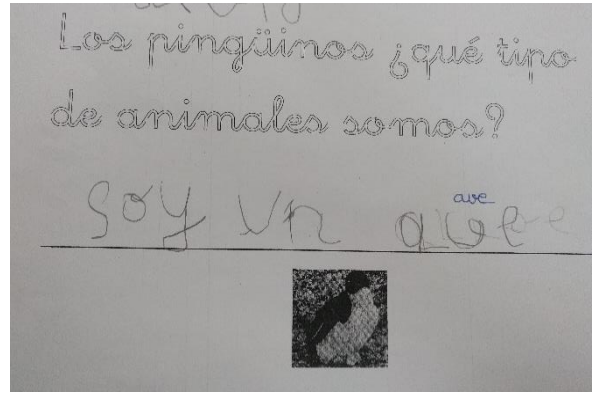 Los pingüinos ¿qué tipo
de animales somos?
ave
soy vn ave